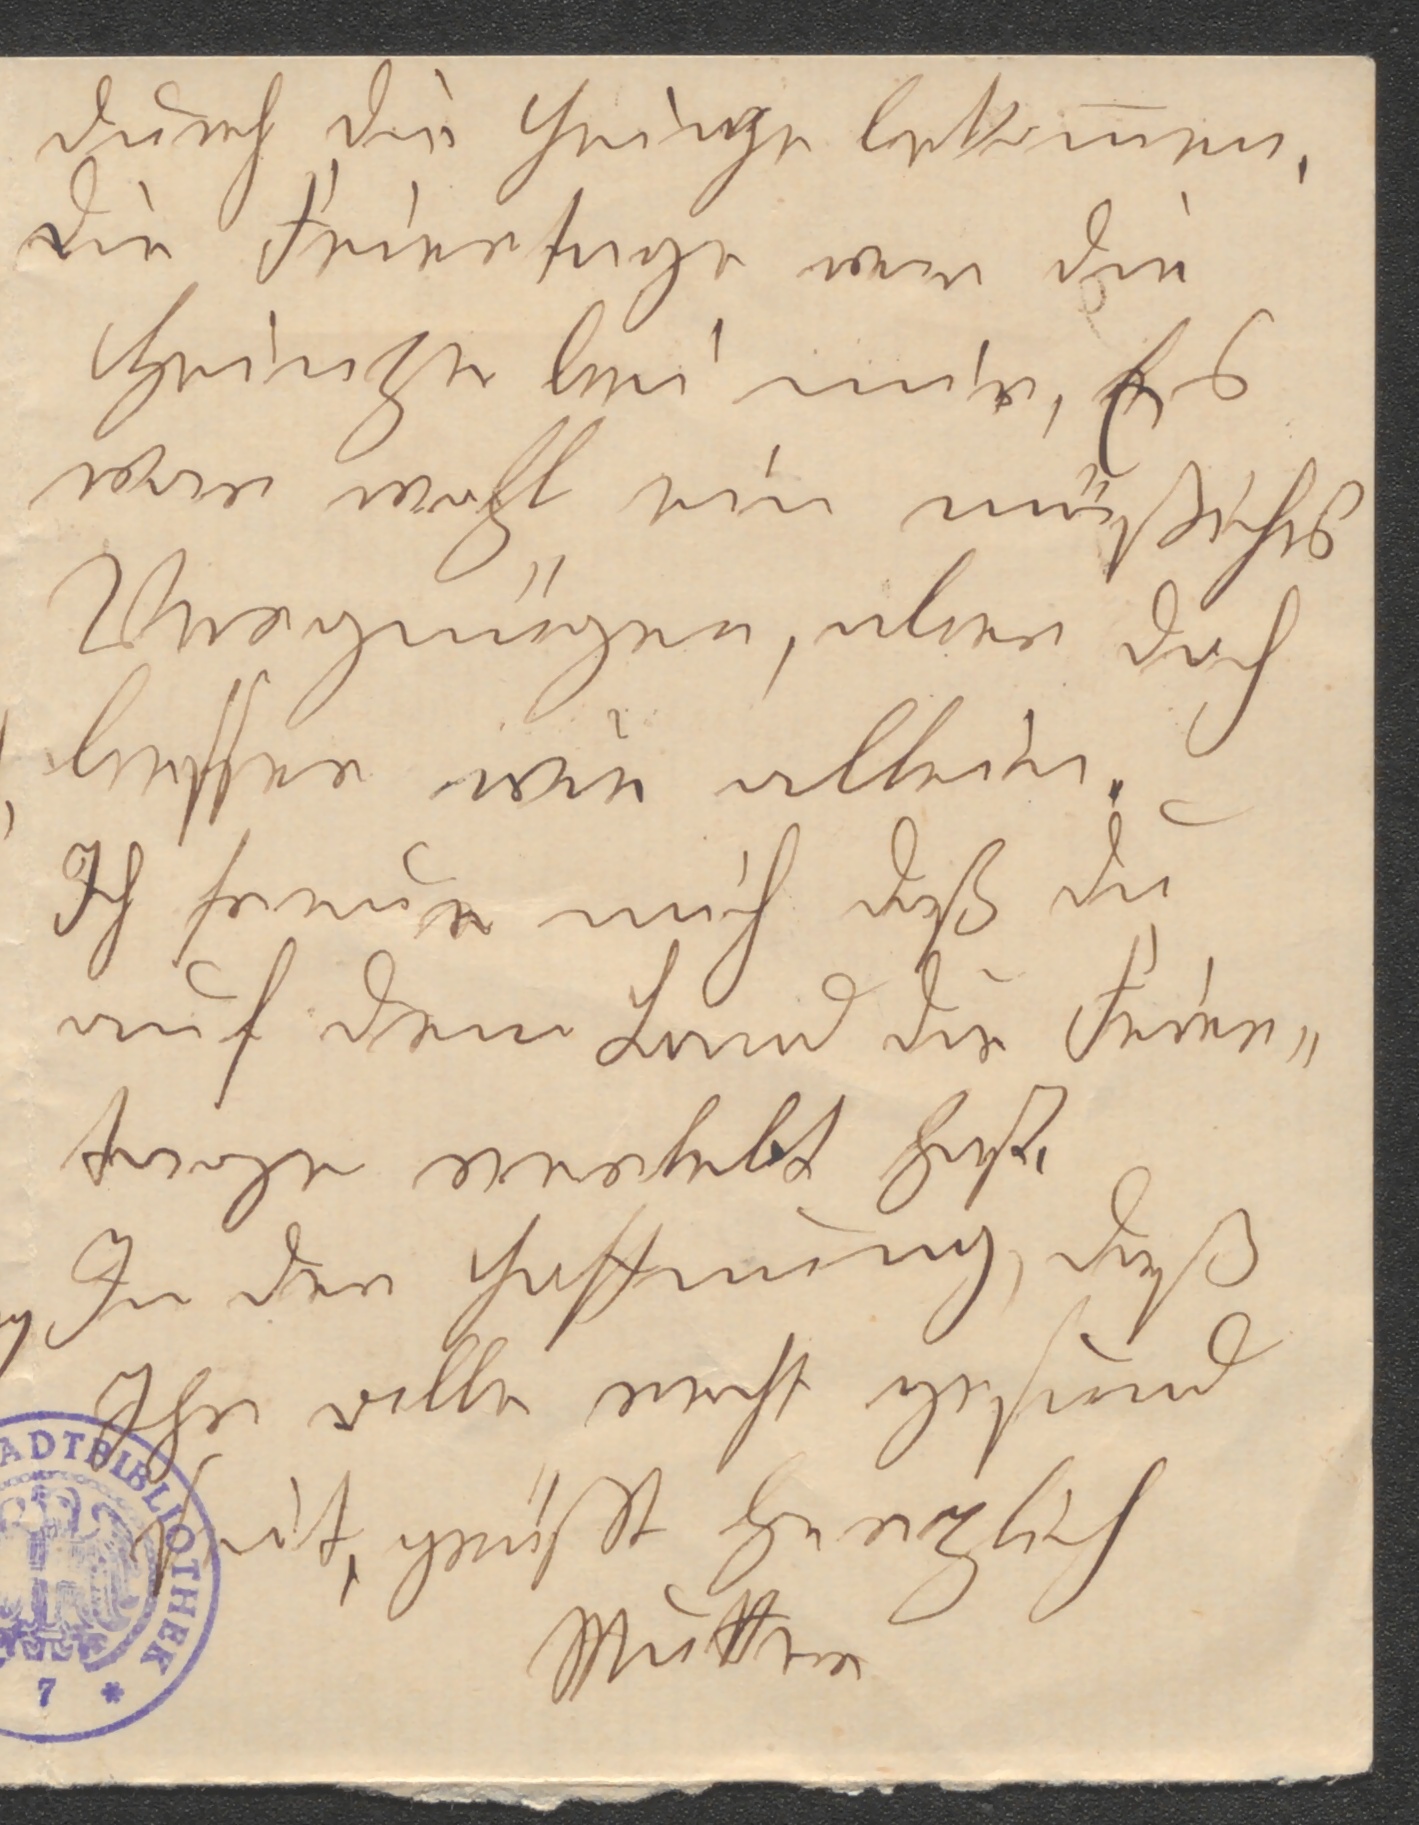 durch die Heinze bekommen.
Die Feiertage war die
Heintze bei mir, es
war wohl ein bischen
Vergnügen, aber doch
besser wie allein.
Ich freue mich daß du
auf dem Land die Feier„
tage verlebt hast.
In der Hoffnung, daß
Ihr alle recht gesund
seit, küsst herzlich
Mutter
STADTBIBLIOTHEK
7 *